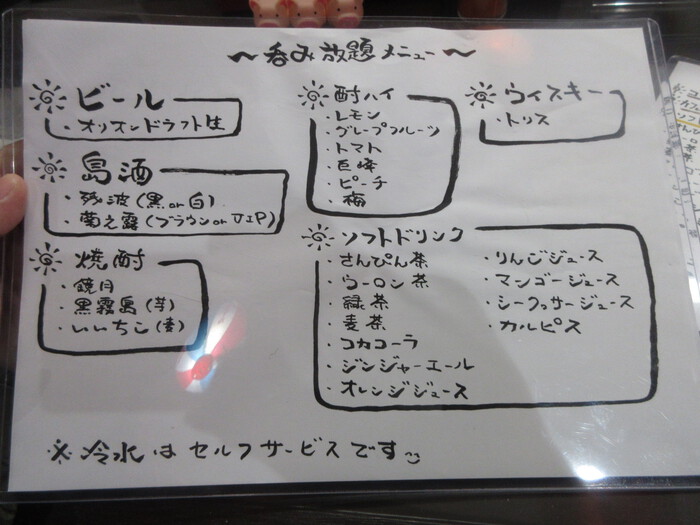 〜呑み放題メニュー〜
ビール
・オリオンドラフト生
島酒
・残波(黒or白)
・菊之露(ブラウンorVIP)
焼酎
・鏡月
・黒霧島(芋)
・いいちこ(麦)
酎ハイ
・レモン
・グレープフルーツ
・トマト
・巨峰
・ピーチ
・梅
ウィスキー
・トリス
ソフトドリンク
・さんぴん茶
・ウーロン茶
・緑茶
・麦茶
・コカコーラ
・ジンジャーエール
・オレンジジュース
・りんごジュース
・マンゴージュース
・シークヮサージュース
・カルピス
※冷水はセルフサービスです